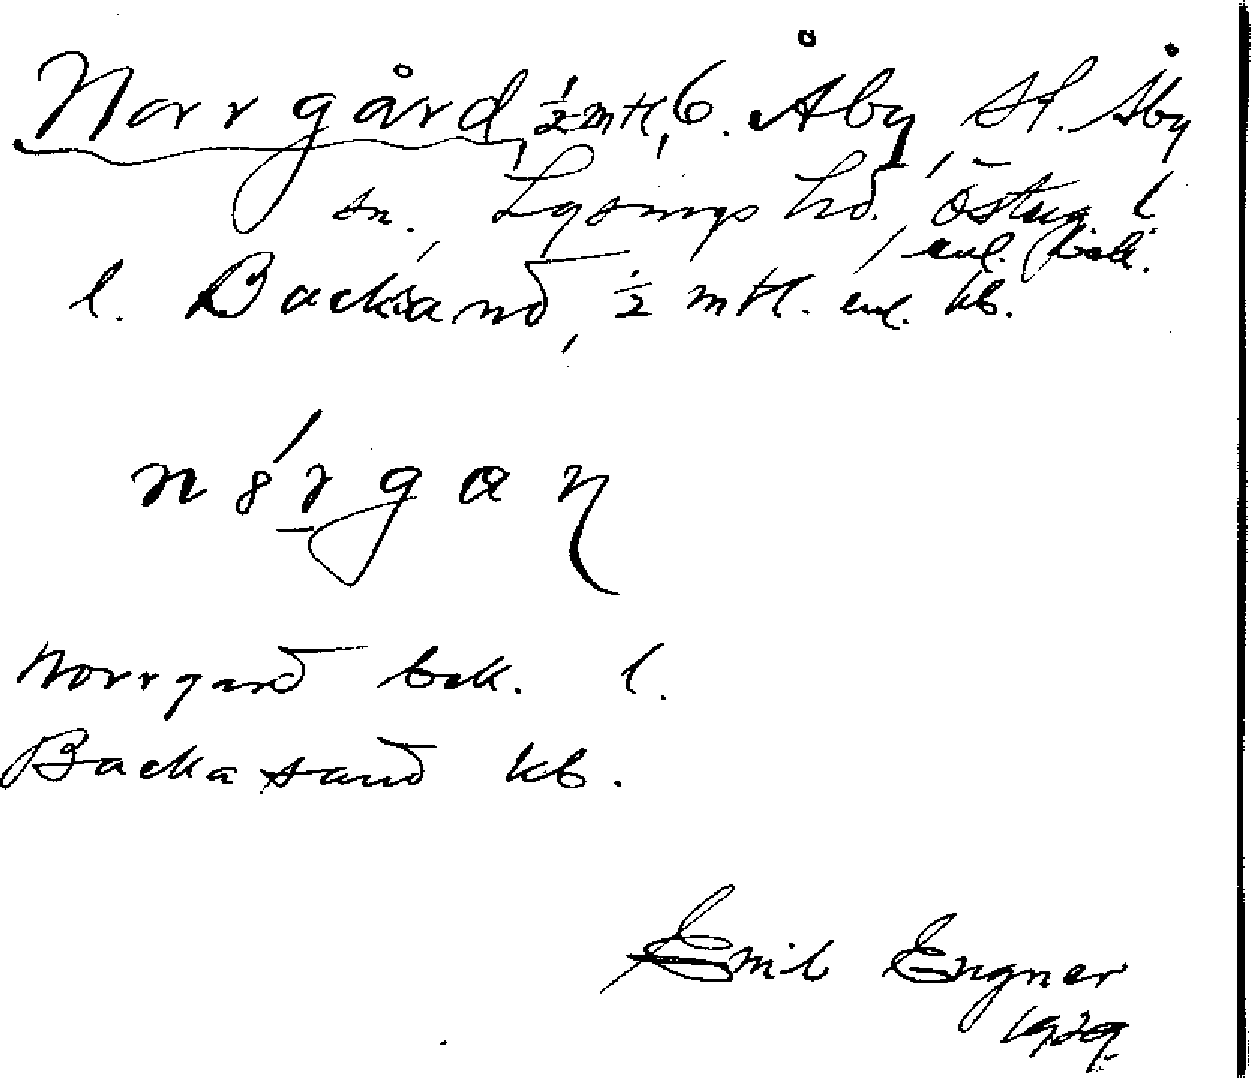 Norrgård, 1/2 mtl, b. Åby, St. Åby
sn., Lysings hd.,Österg l.
enl. bok.
l. Backsand, 1/2 mtl. enl. kb.
Norrgard bok. l.
Backasand kb.
Emil Engner
1929